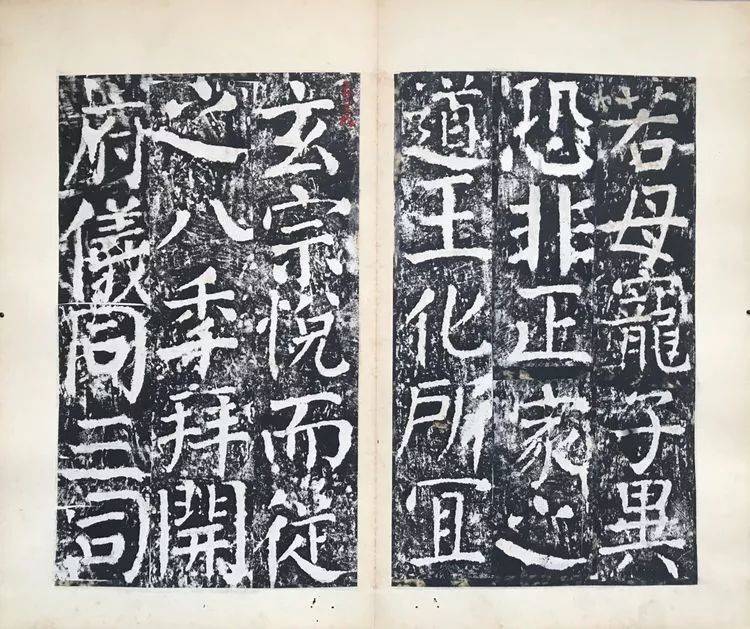 若母寵子異
恐非正家之
道王化所宜
玄宗悅而從
之八年拜開
府儀同三司